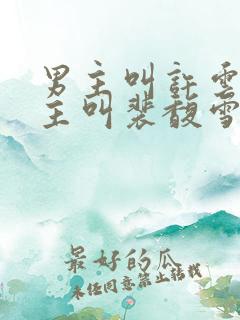 男主叫許雲
主叫裴馥雪
最好的瓜
未经同意禁止转载